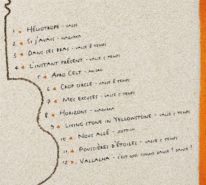 1 Héliotrope - valse
2 Si j'avais - mazurka
3 Dans tes bras - valse 8 temps
4 L'instant présent - valse 5 temps
5 Afro Celt -
6 Crop circle - valse 8 temps
7 Mes excuses - valse 5 temps
8 Horizons - mazurka
9 Living stone in Yellowstone - valse 5 temps
10 Nous allé - scottish
11 Poussières d'étoiles - valse 5 temps
12 Valhalla - c'est une bonne valse !